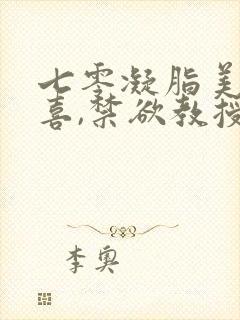 七零凝脂美
喜,禁欲教授
李奥